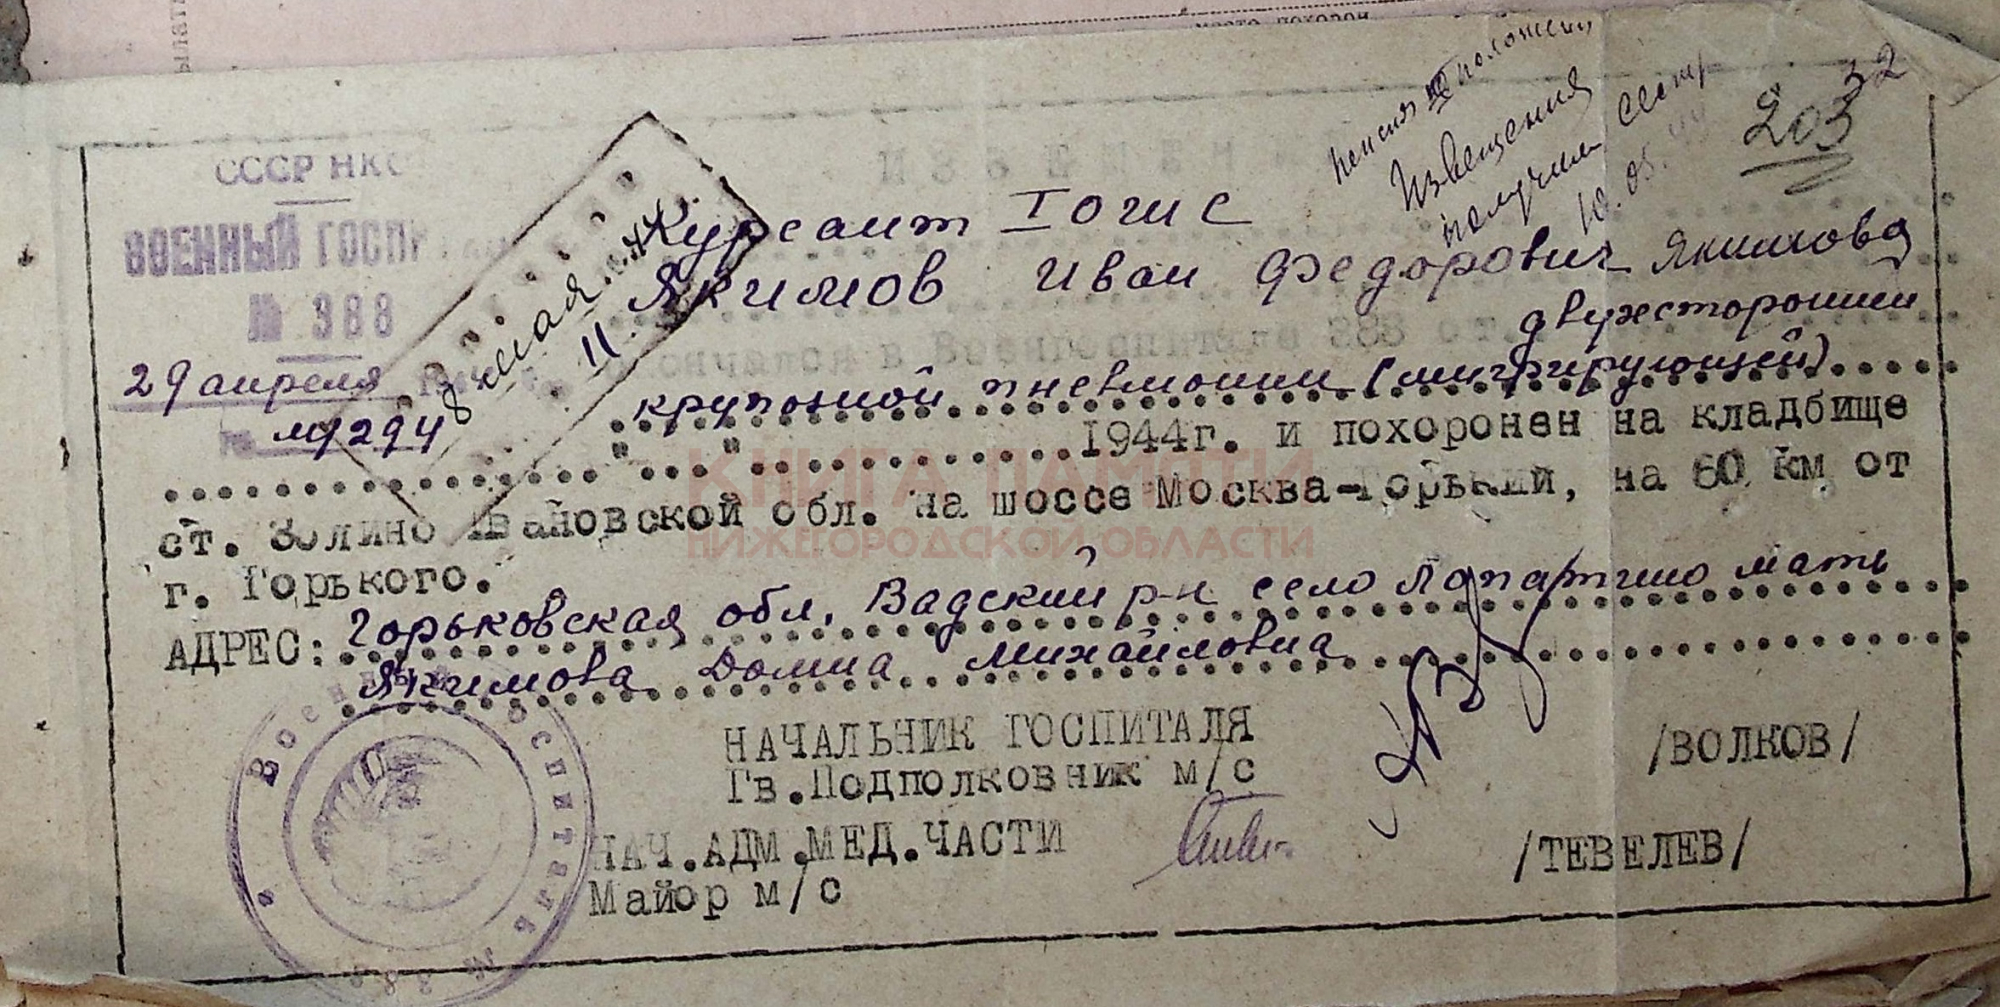 место похорон
Пенсия положен
Извещения
получил сестр
10.05.44
32
203
СССР НКО
ВОЕННЫЙ ГОСПИ
№ 388
29 апреля
№ 1294
ИЗВЕЩЕН
Курсант
Якимов Иван Федорович Якимова
скончался в Военгоспитале 388 от
двухсторонней
крупозной пневмонии (мигрирующей)
"..."............1944г. и похоронен на кладбище
ст. Золино Ивановской обл. на шоссе Москва-Горький, на 60 км от
г. Горького.
АДРЕС: Горьковская обл. Вадский р-н село Лопатино мать
Якимова Домна Михайловна
НАЧАЛЬНИК ГОСПИТАЛЯ
Гв.Подполковник м/с /ВОЛКОВ/
НАЧ.АДМ.МЕД.ЧАСТИ /ТЕВЕЛЕВ/
Майор м/с
Военный Госпиталь № 388
КНИГА ПАМЯТИ
НИЖЕГОРОДСКОЙ ОБЛАСТИ